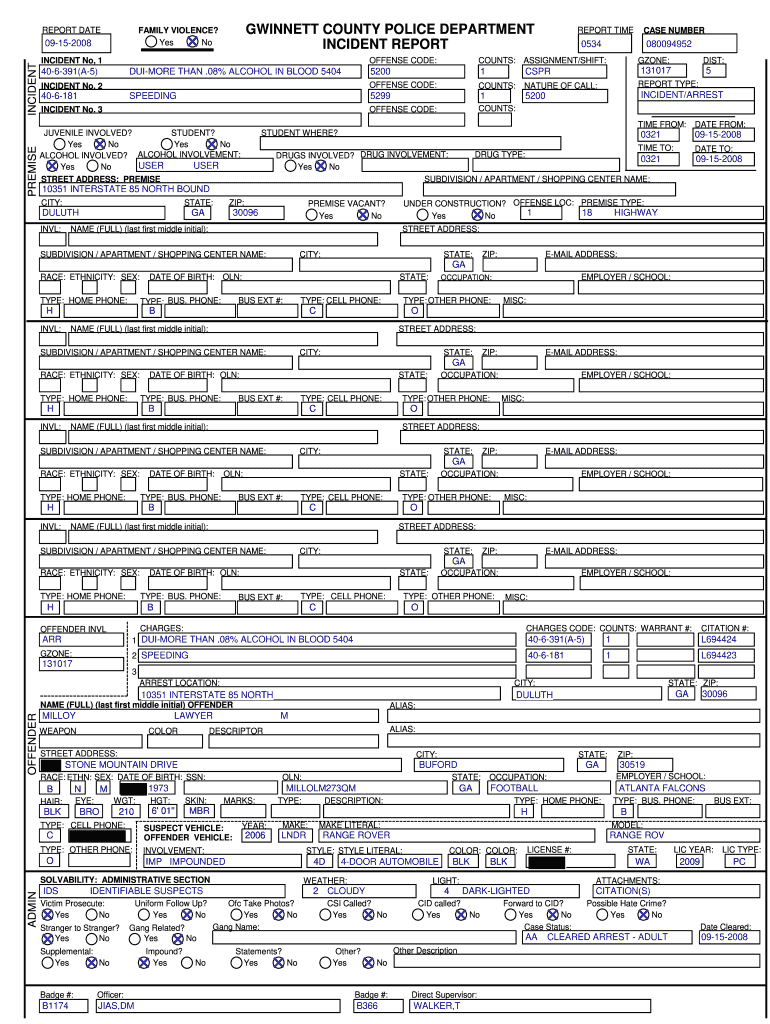 GWINNETT COUNTY POLICE DEPARTMENT
INCIDENT REPORT
REPORT DATE FAMILY VIOLENCE? REPORT TIME CASE NUMBER
09-15-2008 Yes No 0534 080094952
INCIDENT
INCIDENT No. 1 OFFENSE CODE: COUNTS: ASSIGNMENT/SHIFT: GZONE: DIST:
40-6-391(A-5) DUI-MORE THAN .08% ALCOHOL IN BLOOD 5404 5200 1 CSPR 131017 5
INCIDENT No. 2 OFFENSE CODE: COUNTS: NATURE OF CALL: REPORT TYPE:
40-6-181 SPEEDING 5299 1 5200 INCIDENT/ARREST
INCIDENT No. 3 OFFENSE CODE: COUNTS:
TIME FROM: DATE FROM:
0321 09-15-2008
TIME TO: DATE TO:
0321 09-15-2008
PREMISE
JUVENILE INVOLVED? STUDENT? STUDENT WHERE?
Yes No Yes No
ALCOHOL INVOLVED? ALCOHOL INVOLVEMENT: DRUGS INVOLVED? DRUG INVOLVEMENT: DRUG TYPE:
Yes No USER USER Yes No
STREET ADDRESS: PREMISE SUBDIVISION / APARTMENT / SHOPPING CENTER NAME:
10351 INTERSTATE 85 NORTH BOUND
CITY: STATE: ZIP: PREMISE VACANT? UNDER CONSTRUCTION? OFFENSE LOC: PREMISE TYPE:
DULUTH GA 30096 Yes No Yes No 1 18 HIGHWAY
INVL: NAME (FULL) (last first middle initial): STREET ADDRESS:
SUBDIVISION / APARTMENT / SHOPPING CENTER NAME: CITY: STATE: ZIP: E-MAIL ADDRESS:
GA
RACE: ETHNICITY: SEX: DATE OF BIRTH: OLN: STATE: OCCUPATION: EMPLOYER / SCHOOL:
TYPE: HOME PHONE: TYPE: BUS. PHONE: BUS EXT #: TYPE: CELL PHONE: TYPE: OTHER PHONE: MISC:
H B C O
INVL: NAME (FULL) (last first middle initial): STREET ADDRESS:
SUBDIVISION / APARTMENT / SHOPPING CENTER NAME: CITY: STATE: ZIP: E-MAIL ADDRESS:
GA
RACE: ETHNICITY: SEX: DATE OF BIRTH: OLN: STATE: OCCUPATION: EMPLOYER / SCHOOL:
TYPE: HOME PHONE: TYPE: BUS. PHONE: BUS EXT #: TYPE: CELL PHONE: TYPE: OTHER PHONE: MISC:
H B C O
INVL: NAME (FULL) (last first middle initial): STREET ADDRESS:
SUBDIVISION / APARTMENT / SHOPPING CENTER NAME: CITY: STATE: ZIP: E-MAIL ADDRESS:
GA
RACE: ETHNICITY: SEX: DATE OF BIRTH: OLN: STATE: OCCUPATION: EMPLOYER / SCHOOL:
TYPE: HOME PHONE: TYPE: BUS. PHONE: BUS EXT #: TYPE: CELL PHONE: TYPE: OTHER PHONE: MISC:
H B C O
INVL: NAME (FULL) (last first middle initial): STREET ADDRESS:
SUBDIVISION / APARTMENT / SHOPPING CENTER NAME: CITY: STATE: ZIP: E-MAIL ADDRESS:
GA
RACE: ETHNICITY: SEX: DATE OF BIRTH: OLN: STATE: OCCUPATION: EMPLOYER / SCHOOL:
TYPE: HOME PHONE: TYPE: BUS. PHONE: BUS EXT #: TYPE: CELL PHONE: TYPE: OTHER PHONE: MISC:
H B C O
OFFENDER
OFFENDER INVL CHARGES: CHARGES CODE: COUNTS: WARRANT #: CITATION #:
ARR 1 DUI-MORE THAN .08% ALCOHOL IN BLOOD 5404 40-6-391(A-5) 1 L694424
GZONE: 2 SPEEDING 40-6-181 1 L694423
131017 3
ARREST LOCATION: CITY: STATE: ZIP:
10351 INTERSTATE 85 NORTH DULUTH GA 30096
NAME (FULL) (last first middle initial) OFFENDER ALIAS:
MILLOY LAWYER M
WEAPON COLOR DESCRIPTOR ALIAS:
STREET ADDRESS: CITY: STATE: ZIP:
STONE MOUNTAIN DRIVE BUFORD GA 30519
RACE: ETHN: SEX: DATE OF BIRTH: SSN: OLN: STATE: OCCUPATION: EMPLOYER / SCHOOL:
B N M 1973 MILLOLM273QM GA FOOTBALL ATLANTA FALCONS
HAIR: EYE: WGT: HGT: SKIN: MARKS: TYPE: DESCRIPTION: TYPE: HOME PHONE: TYPE: BUS. PHONE: BUS EXT:
BLK BRO 210 6' 01" MBR H B
TYPE: CELL PHONE: SUSPECT VEHICLE: YEAR: MAKE: MAKE LITERAL: MODEL:
C OFFENDER VEHICLE: 2006 LNDR RANGE ROVER RANGE ROV
TYPE: OTHER PHONE: INVOLVEMENT: STYLE: STYLE LITERAL: COLOR: COLOR: LICENSE #: STATE: LIC YEAR: LIC TYPE:
O IMP IMPOUNDED 4D 4-DOOR AUTOMOBILE BLK BLK WA 2009 PC
ADMIN
SOLVABILITY: ADMINISTRATIVE SECTION WEATHER: LIGHT: ATTACHMENTS:
IDS IDENTIFIABLE SUSPECTS 2 CLOUDY 4 DARK-LIGHTED CITATION(S)
Victim Prosecute: Uniform Follow Up? Ofc Take Photos? CSI Called? CID called? Forward to CID? Possible Hate Crime?
Yes No Yes No Yes No Yes No Yes No Yes No Yes No
Stranger to Stranger? Gang Related? Gang Name: Case Status: Date Cleared:
Yes No Yes No AA CLEARED ARREST - ADULT 09-15-2008
Supplemental: Impound? Statements? Other? Other Description
Yes No Yes No Yes No Yes No
Badge #: Officer: Badge #: Direct Supervisor:
B1174 JIAS,DM B366 WALKER,T